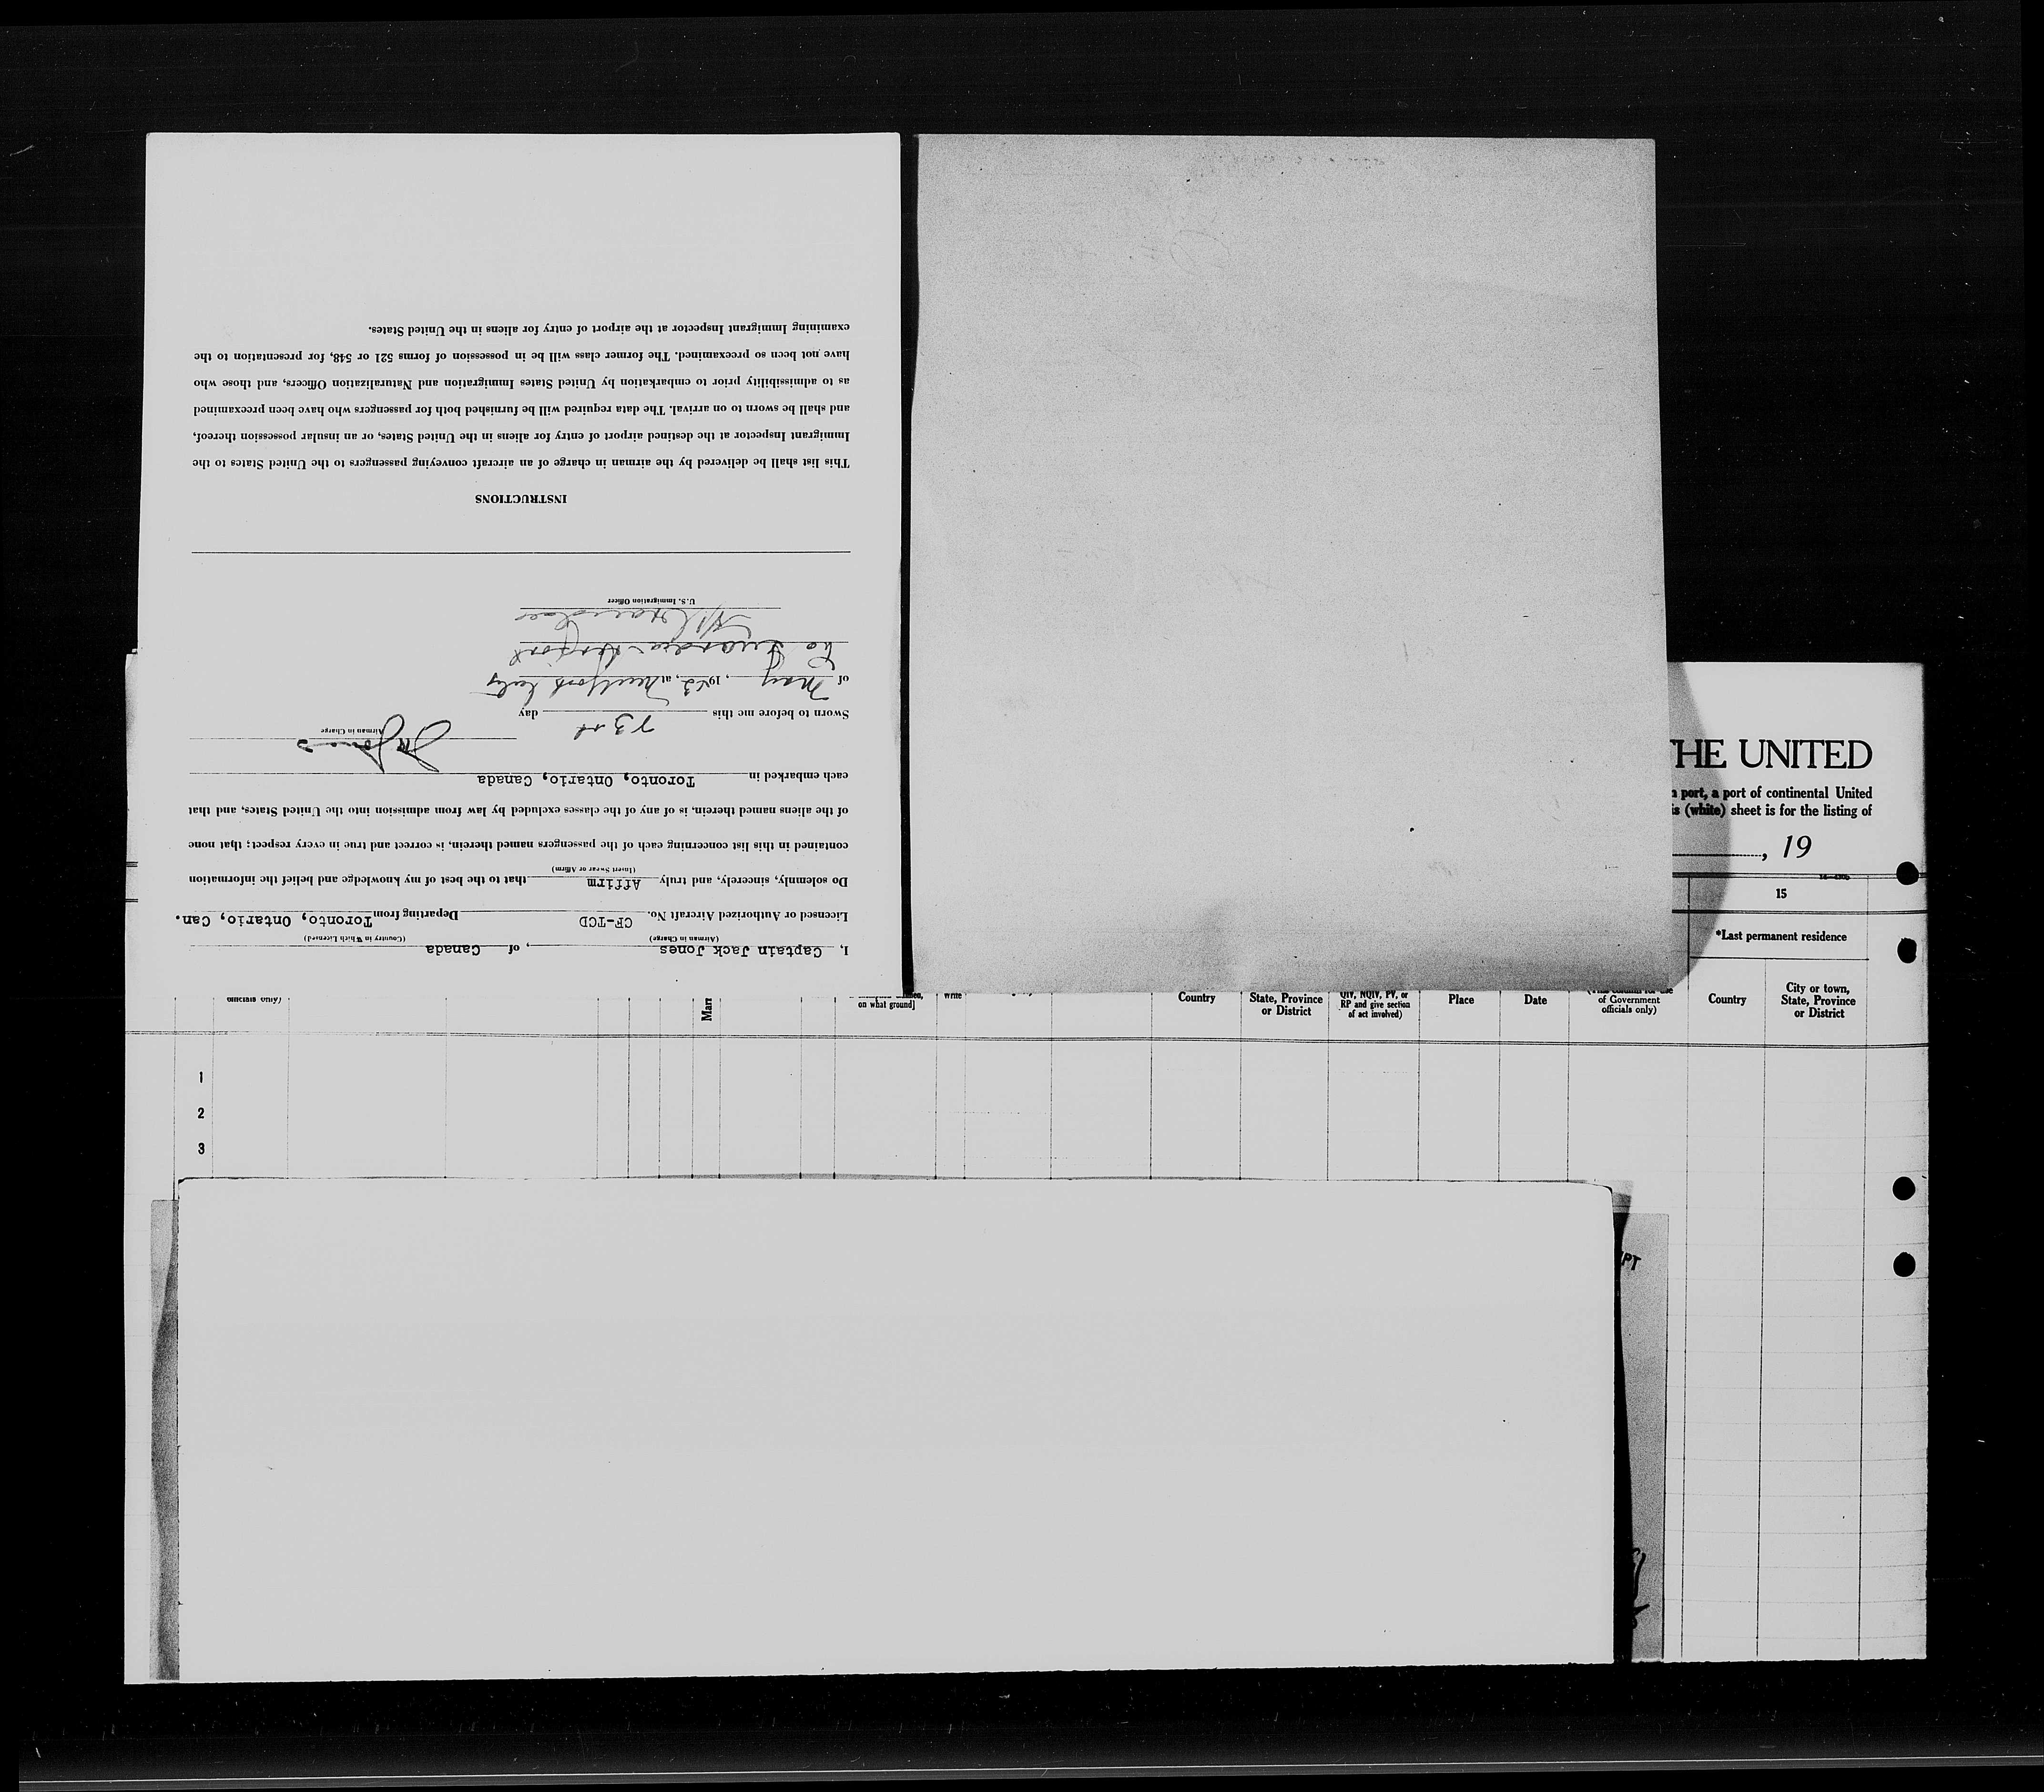 I, Captain Jack Jones, of Canada
(Airman in Charge) (Country in Which Licensed)
Licensed or Authorized Aircraft No. CF-TCD Departing from Toronto, Ontario, Can.
Do solemnly, sincerely, and truly Affirm that to the best of my knowledge and belief the information
(Insert Swear or Affirm)
contained in this list concerning each of the passengers named therein, is correct and true in every respect; that none
of the aliens named therein, is of any of the classes excluded by law from admission into the United States, and that
each embarked in Toronto, Ontario, Canada
Airman in Charge
Sworn to before me this day
of May, 1942, at New York
La Guardia Airport
U.S. Immigration Officer
INSTRUCTIONS
This list shall be delivered by the airman in charge of an aircraft conveying passengers to the United States to the
Immigrant Inspector at the destined airport of entry for aliens in the United States, or an insular possession thereof,
and shall be sworn to on arrival. The data required will be furnished both for passengers who have been preexamined
as to admissibility prior to embarkation by United States Immigration and Naturalization Officers, and those who
have not been so preexamined. The former class will be in possession of forms 521 or 548, for presentation to the
examining Immigrant Inspector at the airport of entry for aliens in the United States.
THE UNITED
port, a port of continental United
(white) sheet is for the listing of
, 19
15
*Last permanent residence
officials only)
on what ground]
write
Country
State, Province
or District
QIV, NQIV, PV, or
RP and give section
of act involved)
Place
Date
of Government
officials only)
Country
City or town,
State, Province
or District
1
2
3